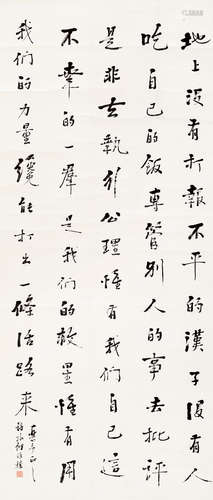 地上没有打報不平的漢子没有人
吃自己的飯專管别人的事去批評
是非去執行公理惟有我們自己這
不幸的一羣是我們的救星惟有用
我們的力量纔能打出一條活路来